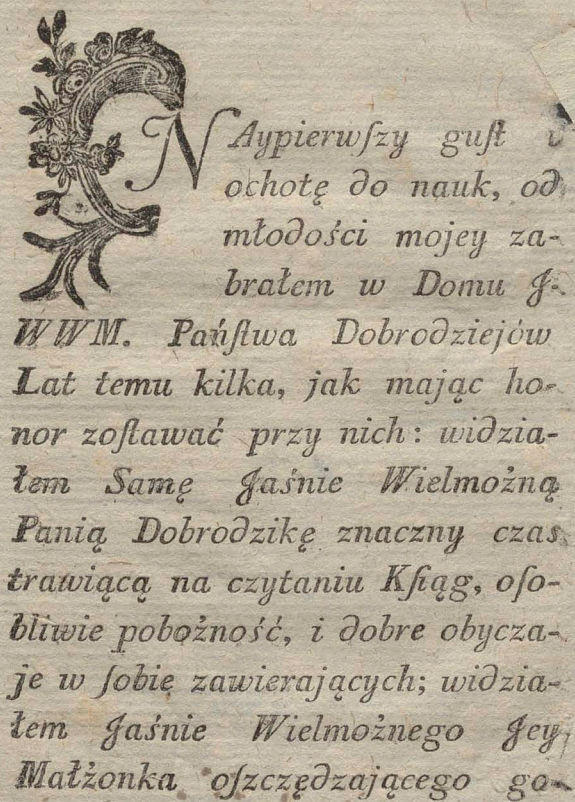 NAypierwſzy guſt i
ochotę do nauk, od
młodości mojey za-
brałem w Domu J.
WWM. Pańſtwa Dobrodziejów
Lat temu kilka, jak mając ho-
nor zoſtawać przy nich: widzia-
łem Samę Jaśnie Wielmożną
Panią Dobrodzikę znaczny czas
trawiącą na czytaniu Kſiąg, oſo-
bliwie pobożność, i dobre obycza-
je w ſobie zawierających; widzia-
łem Jaśnie Wielmożnego Jey
Małżonka oſzczędzającego go-